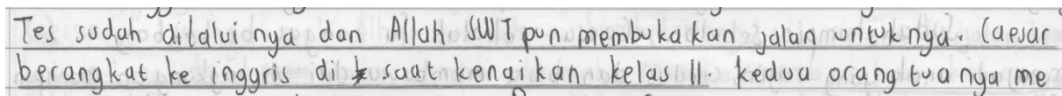 Tes sudah dilaluinya dan Allah SWT pun membukakan jalan untuknya. Caesar
berangkat ke inggris di saat kenaikan kelas 11. kedua orang tuanya me